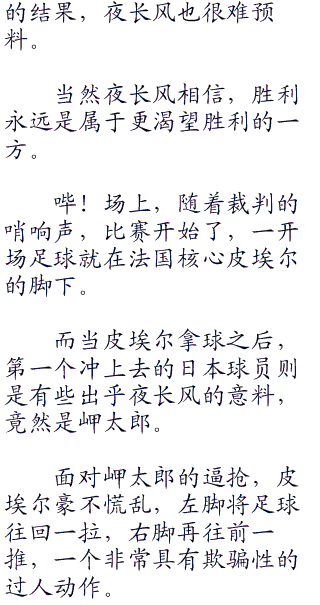 的结果，夜长风也很难预
料。
当然夜长风相信，胜利
永远是属于更渴望胜利的一
方。
哔！场上，随着裁判的
哨响声，比赛开始了，一开
场足球就在法国核心皮埃尔
的脚下。
而当皮埃尔拿球之后，
第一个冲上去的日本球员则
是有些出乎夜长风的意料，
竟然是岬太郎。
面对岬太郎的逼抢，皮
埃尔豪不慌乱，左脚将足球
往回一拉，右脚再往前一
推，一个非常具有欺骗性的
过人动作。